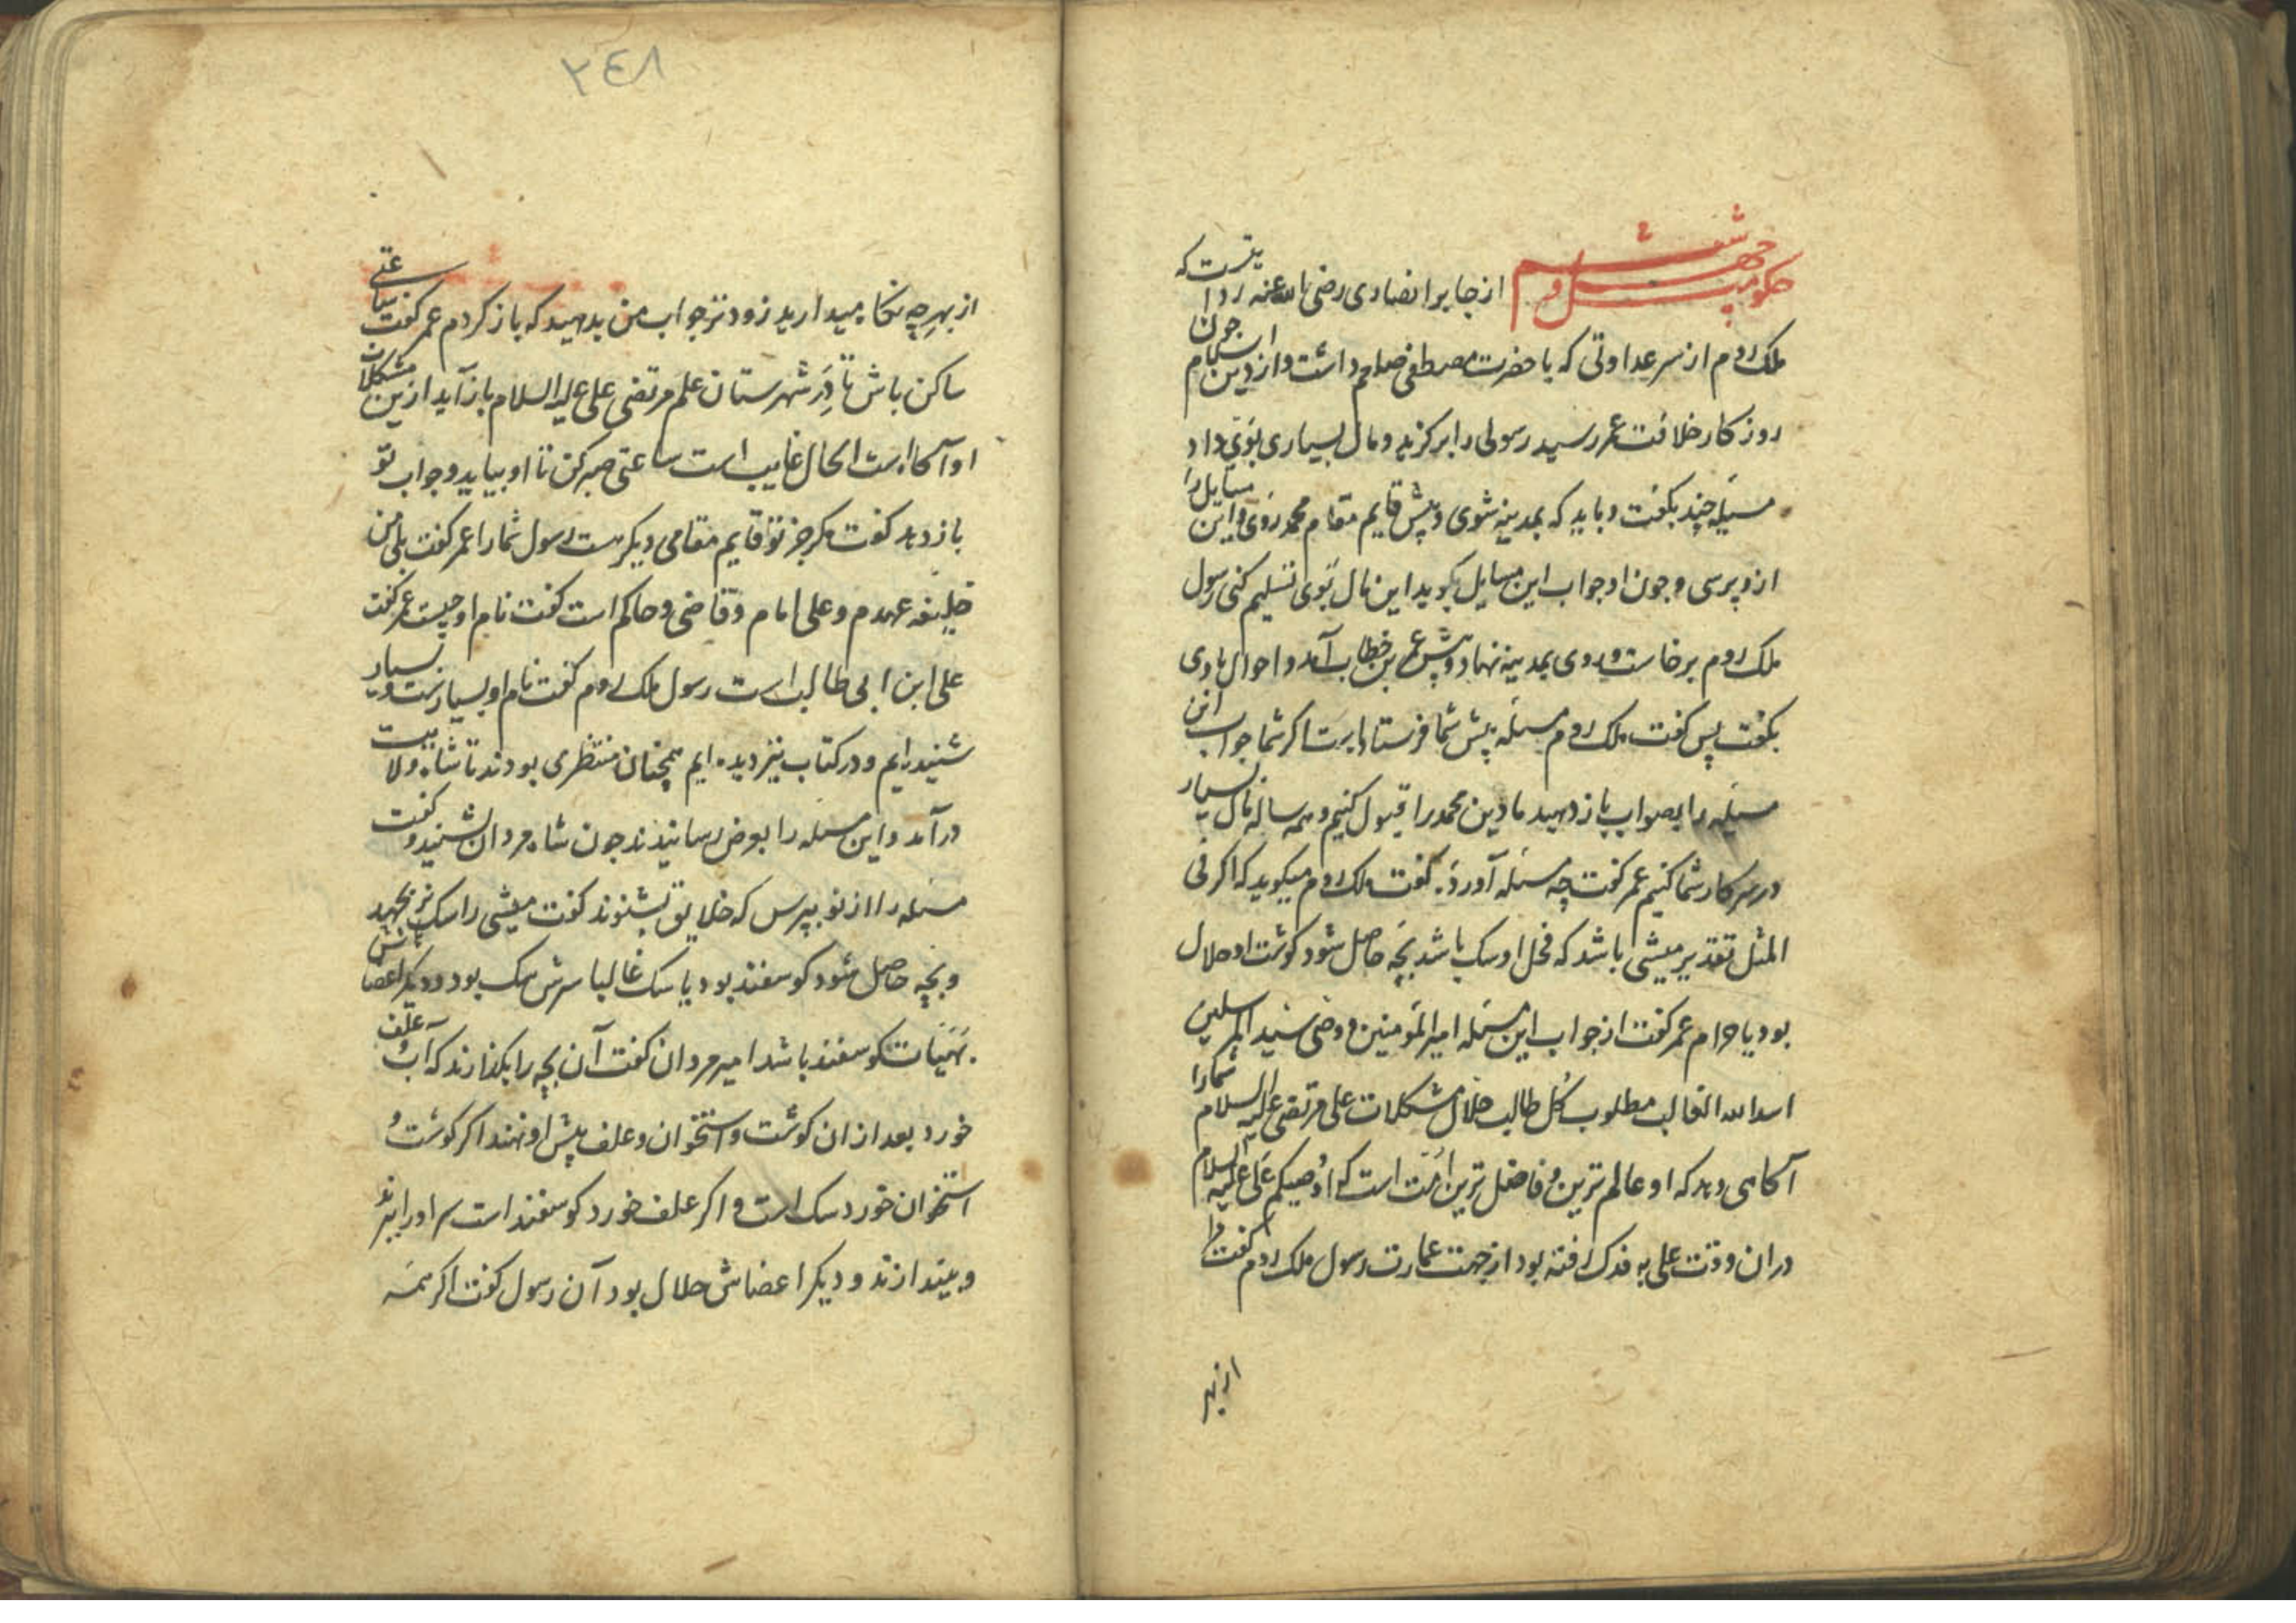 حکومت چهل و ششم از جابر انصاری رضی الله عنه روایتست که
ملک روم از سر عداوتی که با حضرت مصطفی صلعم داشت و از دین اسلام چون
روزکار خلافت عمر رسید رسولی را برکزید و مال بسیاری بوی داد
مسئله چند بکفت و باید که بمدینه شوی و پیش قایم مقام محمد روی و این مسایل را
ازو پرسی و چون او جواب این مسایل بکوید این مال بوی تسلیم کنی رسول
ملک روم برخاست و روی بمدینه نهاد و پیش عمر بن خطاب آمد و احوال با وی
بکفت پس کفت ملک روم مسئله پیش شما فرستاده است اکر شما جواب این
مسئله را بصواب باز دهید ما دین محمد را قبول کنیم و همه ساله مال بسیار
در سرکار شما کنیم عمر کفت چه مسئله آورد کفت ملک روم میکوید که اکر فی
المثل تقدیر میشی باشد که فحل او سک باشد بچه حاصل شود کوشت او حلال
بود یا حرام عمر کفت از جواب این مسئله امیر المؤمنین و وصی سید المرسلین
اسد الله الغالب مطلوب کل طالب حلال مشکلات علی مرتضی علیه السلام شما را
آکاهی دهد که او عالم ترین و فاضل ترین امت است که اوصیکم علی علیه السلام
دران وقت علی به فدک رفته بود از جهت عمارت رسول ملک روم کفت مرا
از بهر
٢٤٨
از بهر چه نکاه میدارید زودتر جواب من بدهید که باز کردم عمر کفت ساعتی
ساکن باش تا در شهرستان علم مرتضی علی علیه السلام باز آید ازین مشکلات
او آکاه است الحال غایب است ساعتی صبر کن تا او بیاید و جواب تو
باز دهد کفت مکر جز تو قایم مقامی دیکر هست رسول شما را عمر کفت بلی من
خلیفه عهدم و علی امام و قاضی و حاکم است کفت نام او چیست عمر کفت
علی ابن ابی طالب است رسول ملک روم کفت نام او بسیار
شنیده ایم و در کتاب نیز دیده ایم همچنان منتظری بودند تا شاه ولایت
درآمد و این مسئله را بعرض رسانیدند چون شاه مردان بشنید و کفت
مسئله را از نو بپرس که خلایق بشنوند کفت میشی را سک نر بجهید
و بچه حاصل شود کوسفند بود یا سک غالبا سرش سک بود و دیکر اعضانش
بهمیات کوسفند باشد امیر مردان کفت آن بچه را بکذارند که آب و علف
خورد بعد ازان کوشت و استخوان و علف پیش او نهند اکر کوشت و
استخوان خورد سک است و اکر علف خورد کوسفند است سر او را ببرند
و بیندازند و دیکر اعضاش حلال بود آن رسول کفت اکر همه